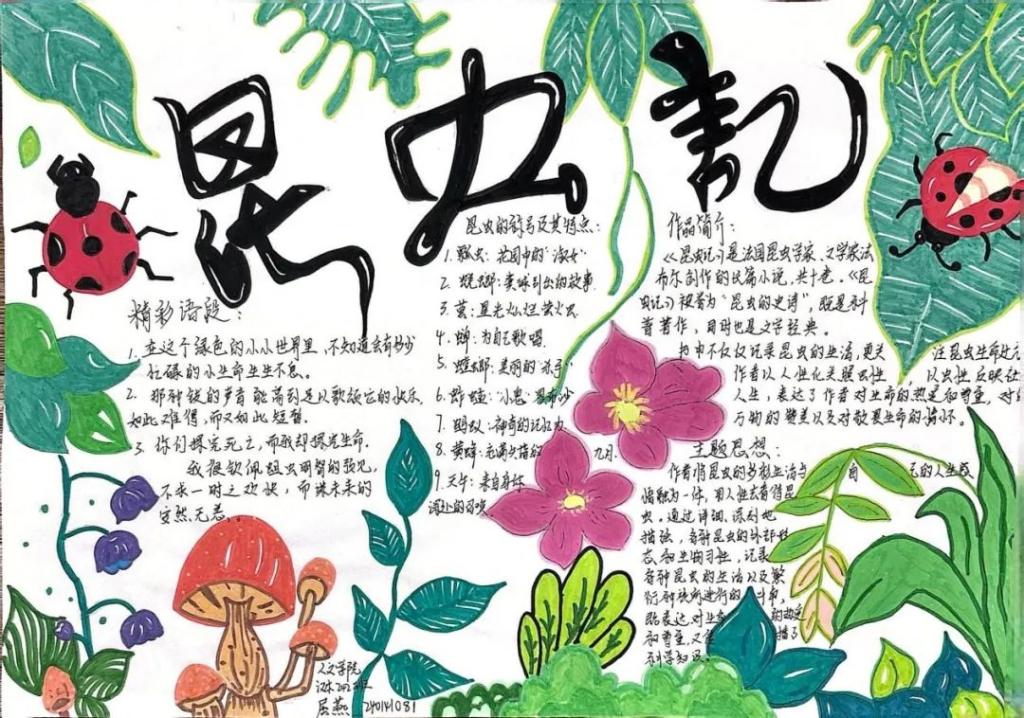 昆虫記
精彩语段：
1. 在这个绿色的小小世界里，不知道会有多少
忙碌的小生命生生不息。
2. 那种钹的声音能高到足以歌颂它的快乐，
如此难得，而又如此短暂。
3. 你们探究死亡，而我却探究生命.
我很钦佩蛆虫明智的预见，
不求一时之欢快，而谋未来的
安然无恙。
昆虫的绰号及其特点：
1. 瓢虫：花园中的
2. 蜣螂：粪球引出的故事
3. 萤：星光灿烂萤火虫
4. 蝉：为自己歌唱
5. 螳螂：美丽的"杀手"
6. 蟋蟀：
7. 蚂蚁：神奇的记忆力
8. 黄蜂：充满失落的 九月
9. 天牛：来自身体
深处的召唤
作品简介：
《昆虫记》是法国昆虫学家、文学家法
布尔创作的长篇小说，共十卷。《昆
虫记》被誉为"昆虫的史诗"，既是科
普著作，同时也是文学经典。
书中不仅仅记录昆虫的生活，更关 注昆虫生命状
作者以人性化关照虫性 以虫性反映社
人生，表达了作者对生命的热爱和尊重，对
万物的赞美以及对敬畏生命的情怀。
主题思想：
作者将昆虫的多彩生活与 自 己的人生感
悟融为一体，用人性去看待昆
虫。通过详细、深刻地
描绘，各种昆虫的外部形
态和生物习性，记录
各种昆虫的生活以及繁
衍种族所进行的 斗争，
既表达对生命 的热爱
和尊重，又
科学知识。
人文学院
汉本
居燕 240141081